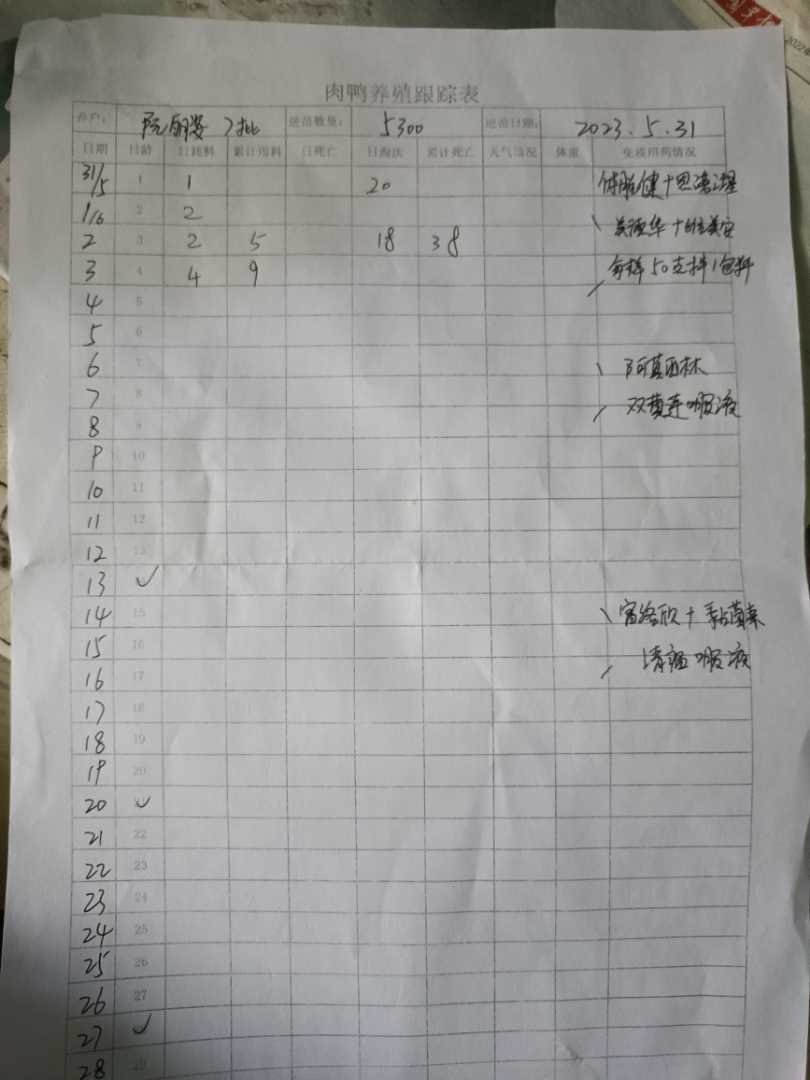 肉鸭养殖跟踪表
养户: 批 进苗数量: 5300 进苗日期: 2023.5.31
日期 日龄 日耗料 累计用料 日死亡 日淘汰 累计死亡 天气情况 体重 免疫用药情况
31/5 1 1 20
1/6 2 2
2 3 2 5 18 38
3 4 4 9 每样50支拌1包料
4 5
5 6
6 7 阿莫西林
7 8 双黄连口服液
8 9
9 10
10 11
11 12
12 13
13 ✓
14 15 + 黏菌素
15 16 清瘟口服液
16 17
17 18
18 19
19 20
20 ✓
21 22
22 23
23 24
24 25
25 26
26 27
27 ✓
28 29